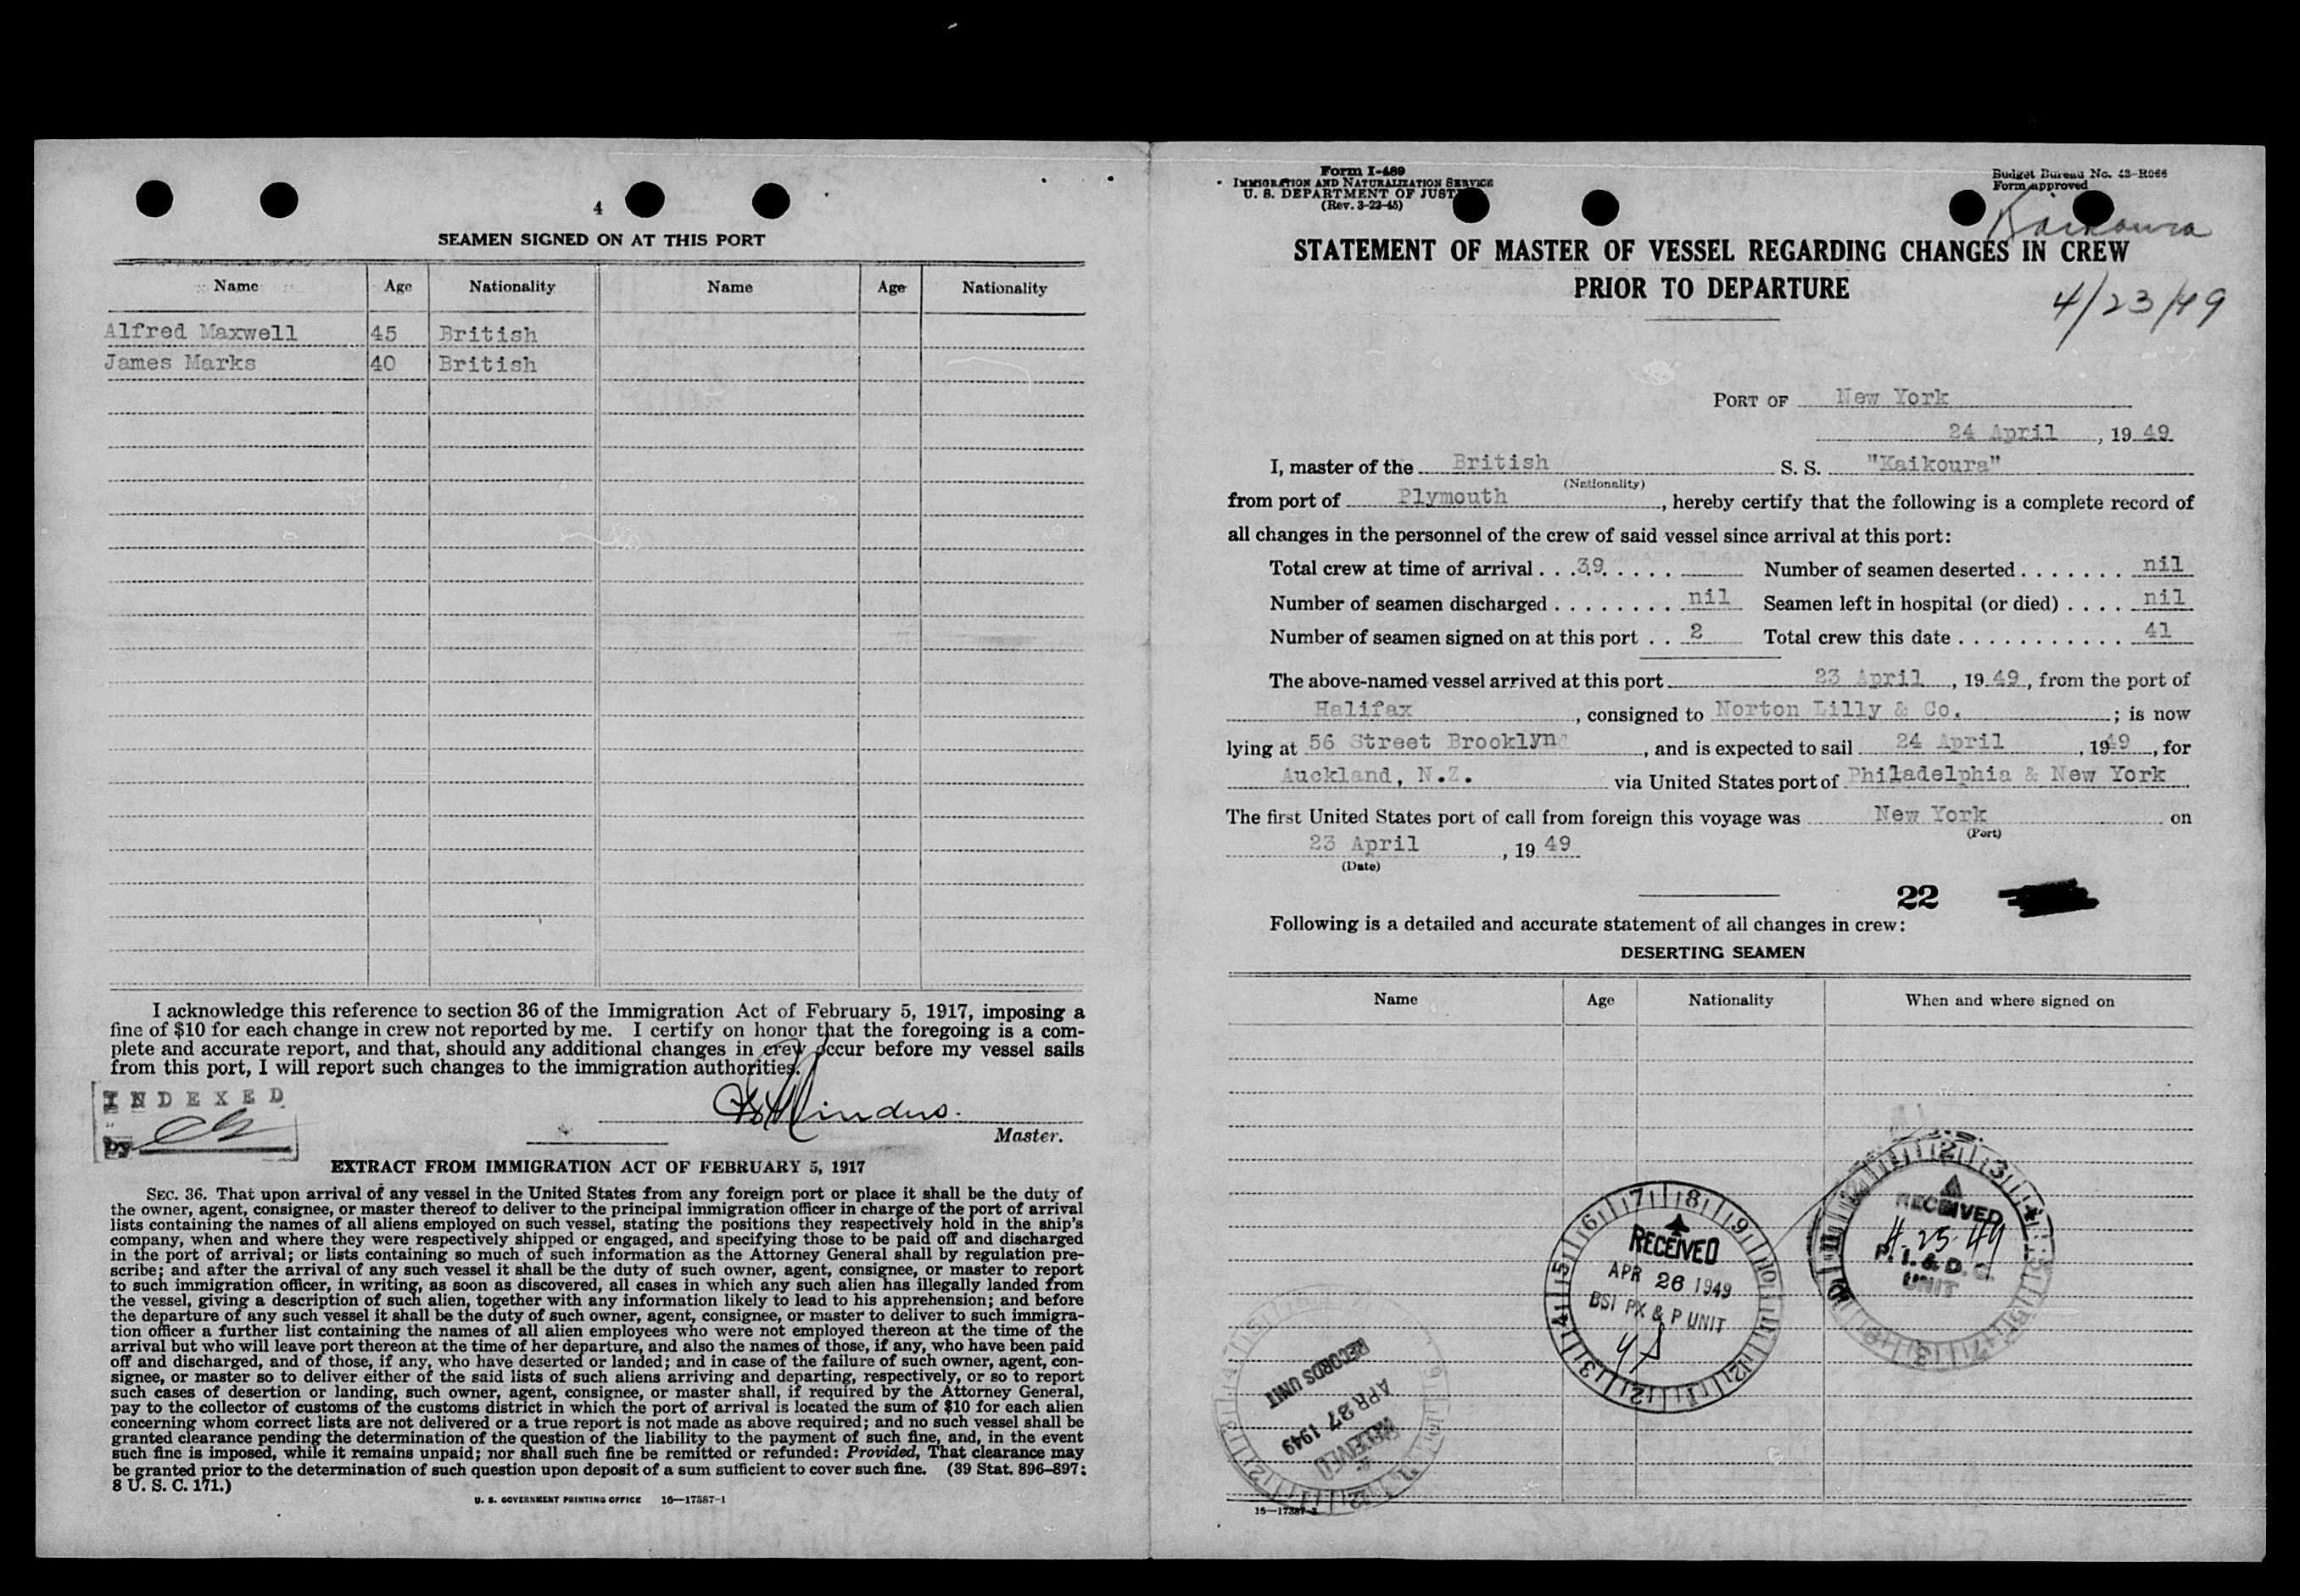 4
SEAMEN SIGNED ON AT THIS PORT
Name Age Nationality Name Age Nationality
Alfred Maxwell 45 British
James Marks 40 British
I acknowledge this reference to section 36 of the Immigration Act of February 5, 1917, imposing a
fine of $10 for each change in crew not reported by me. I certify on honor that the foregoing is a com-
plete and accurate report, and that, should any additional changes in crew occur before my vessel sails
from this port, I will report such changes to the immigration authorities.
INDEXED
by
Master.
EXTRACT FROM IMMIGRATION ACT OF FEBRUARY 5, 1917
SEC. 36. That upon arrival of any vessel in the United States from any foreign port or place it shall be the duty of
the owner, agent, consignee, or master thereof to deliver to the principal immigration officer in charge of the port of arrival
lists containing the names of all aliens employed on such vessel, stating the positions they respectively hold in the ship's
company, when and where they were respectively shipped or engaged, and specifying those to be paid off and discharged
in the port of arrival; or lists containing so much of such information as the Attorney General shall by regulation pre-
scribe; and after the arrival of any such vessel it shall be the duty of such owner, agent, consignee, or master to report
to such immigration officer, in writing, as soon as discovered, all cases in which any such alien has illegally landed from
the vessel, giving a description of such alien, together with any information likely to lead to his apprehension; and before
the departure of any such vessel it shall be the duty of such owner, agent, consignee, or master to deliver to such immigra-
tion officer a further list containing the names of all alien employees who were not employed thereon at the time of the
arrival but who will leave port thereon at the time of her departure, and also the names of those, if any, who have been paid
off and discharged, and of those, if any, who have deserted or landed; and in case of the failure of such owner, agent, con-
signee, or master so to deliver either of the said lists of such aliens arriving and departing, respectively, or so to report
such cases of desertion or landing, such owner, agent, consignee, or master shall, if required by the Attorney General,
pay to the collector of customs of the customs district in which the port of arrival is located the sum of $10 for each alien
concerning whom correct lists are not delivered or a true report is not made as above required; and no such vessel shall be
granted clearance pending the determination of the question of the liability to the payment of such fine, and, in the event
such fine is imposed, while it remains unpaid; nor shall such fine be remitted or refunded: Provided, That clearance may
be granted prior to the determination of such question upon deposit of a sum sufficient to cover such fine. (39 Stat. 896–897;
8 U. S. C. 171.)
U. S. GOVERNMENT PRINTING OFFICE 16—17387-1
Form I-489
IMMIGRATION AND NATURALIZATION SERVICE
U. S. DEPARTMENT OF JUST
(Rev. 3-22-45)
Budget Bureau No. 43-R066
Form approved
Kaikoura
STATEMENT OF MASTER OF VESSEL REGARDING CHANGES IN CREW
PRIOR TO DEPARTURE
4/23/49
PORT OF New York
24 April, 19 49
I, master of the British S. S. "Kaikoura"
(Nationality)
from port of Plymouth, hereby certify that the following is a complete record of
all changes in the personnel of the crew of said vessel since arrival at this port:
Total crew at time of arrival . . . 39 . . . . . Number of seamen deserted . . . . . . . nil
Number of seamen discharged . . . . . . . . nil Seamen left in hospital (or died) . . . . nil
Number of seamen signed on at this port . . 2 Total crew this date . . . . . . . . . . . . 41
The above-named vessel arrived at this port 23 April, 19 49, from the port of
Halifax, consigned to Norton Lilly & Co.; is now
lying at 56 Street Brooklyn, and is expected to sail 24 April, 1949, for
Auckland, N.Z. via United States port of Philadelphia & New York
The first United States port of call from foreign this voyage was New York on
(Port)
23 April, 19 49
(Date)
22
Following is a detailed and accurate statement of all changes in crew:
DESERTING SEAMEN
Name Age Nationality When and where signed on
RECEIVED
4-25-49
P. I. & D. C.
UNIT
RECEIVED
APR 26 1949
BSI PX & P UNIT
RECEIVED
APR 27 1949
RECORDS UNIT